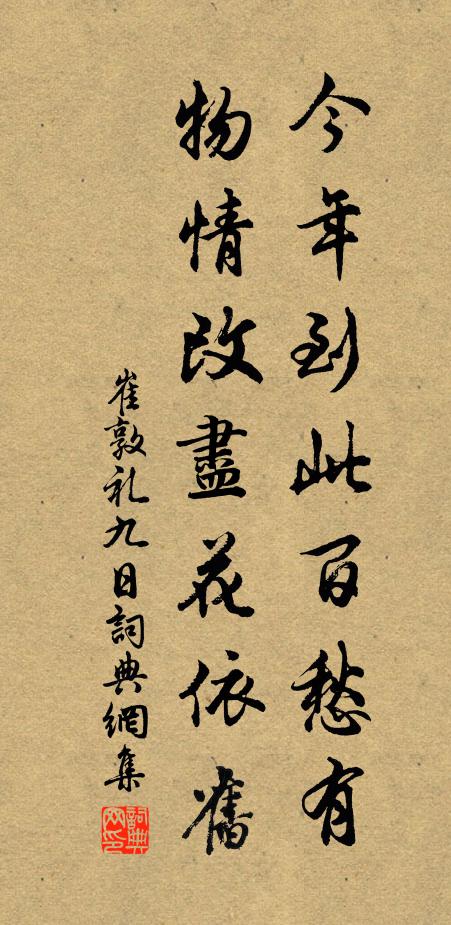 今年到此百愁有
物情改盡花依舊
崔敦礼九日詞典網集
詞典網印